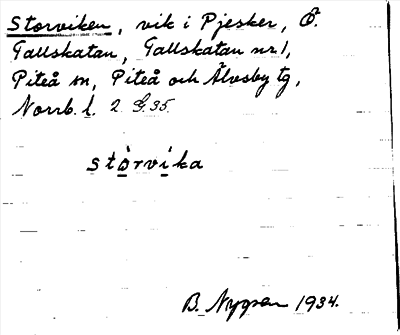 Storviken, vik i Pjesker, Ö.
Tallskatan, Tallskatan nr 1,
Piteå sn, Piteå och Älvsby tg,
Norrb. l. 2 G. 35.
stòrvika
B. Nygren 1934.